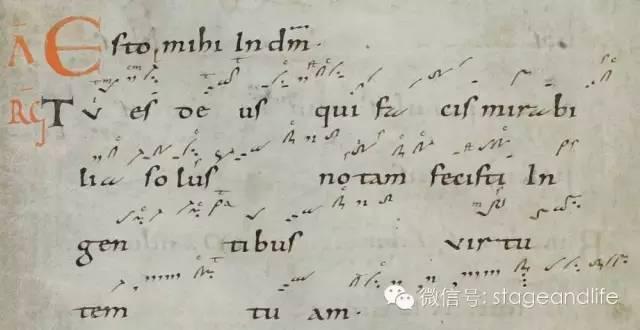 A Esto mihi In dm̅.
RG Tu es de us qui fa cis mirabi
lia solus notam fecisti In
gen tibus virtu
tem tu am.
微信号: stageandlife